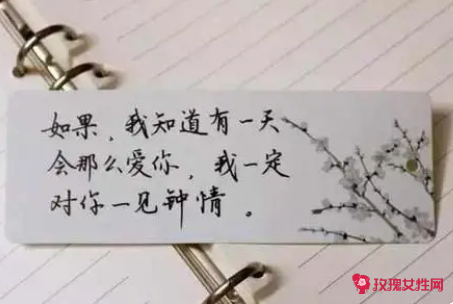 如果，我知道有一天
会那么爱你，我一定
对你一见钟情。
玫瑰女性网